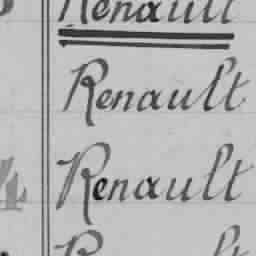 Renault
Renault
4 Renault